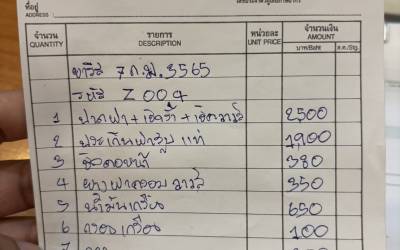 ที่อยู่
ADDRESS
จำนวน รายการ หน่วยละ จำนวนเงิน
QUANTITY DESCRIPTION UNIT PRICE AMOUNT
บาท/Baht ส.ต./Stg.
ยาริส 7 ก.ม. 3565
รหัส Z004
1 ปาดฝา + 2500
2 ประเก็นฝาสูบ แท้ 1,900
3 ซีลคอหน้า 380
4 ยางฝาครอบวาล์ว 350
5 น้ำมันเครื่อง 650
6 กรองเครื่อง 100
7